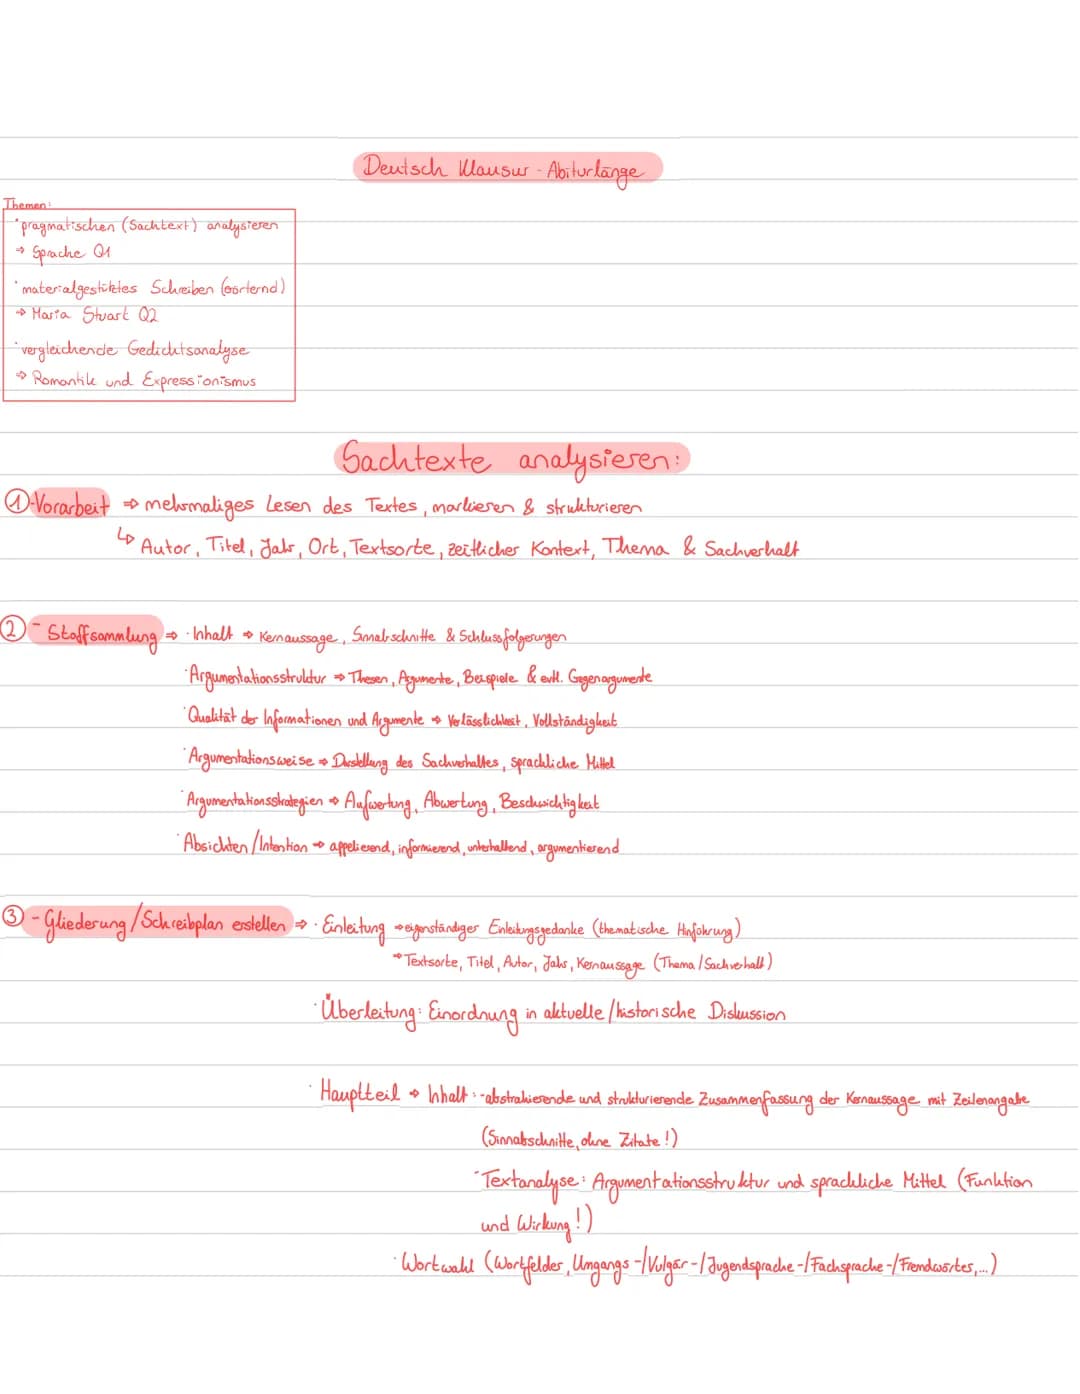 Deutsch Klausur - Abiturlänge
Themen:
· pragmatischen (Sachtext) analysieren
⇒ Sprache Q1
· materialgestütztes Schreiben (erörternd)
⇒ Maria Stuart Q2
· vergleichende Gedichtsanalyse
⇒ Romantik und Expressionismus
Sachtexte analysieren:
① - Vorarbeit ⇒ mehrmaliges Lesen des Textes, markieren & strukturieren
↳ Autor, Titel, Jahr, Ort, Textsorte, zeitlicher Kontext, Thema & Sachverhalt
② - Stoffsammlung ⇒ · Inhalt ⇒ Kernaussage, Sinnabschnitte & Schlussfolgerungen
· Argumentationsstruktur ⇒ Thesen, Argumente, Beispiele & evtl. Gegenargumente
· Qualität der Informationen und Argumente ⇒ Verlässlichkeit, Vollständigkeit
· Argumentationsweise ⇒ Darstellung des Sachverhaltes, sprachliche Mittel
· Argumentationsstrategien ⇒ Aufwertung, Abwertung, Beschwichtigkeit
· Absichten/Intention ⇒ appelierend, informierend, unterhaltend, argumentierend
③ - Gliederung/Schreibplan erstellen ⇒ · Einleitung ⇒ eigenständiger Einleitungsgedanke (thematische Hinführung)
⇒ Textsorte, Titel, Autor, Jahr, Kernaussage (Thema/Sachverhalt)
· Überleitung: Einordnung in aktuelle/historische Diskussion
· Hauptteil ⇒ Inhalt: - abstrahierende und strukturierende Zusammenfassung der Kernaussage mit Zeilenangabe
(Sinnabschnitte, ohne Zitate!)
- Textanalyse: Argumentationsstruktur und sprachliche Mittel (Funktion
und Wirkung!)
· Wortwahl (Wortfelder, Umgangs-/Vulgär-/Jugendsprache-/Fachsprache-/Fremdwörter,...)